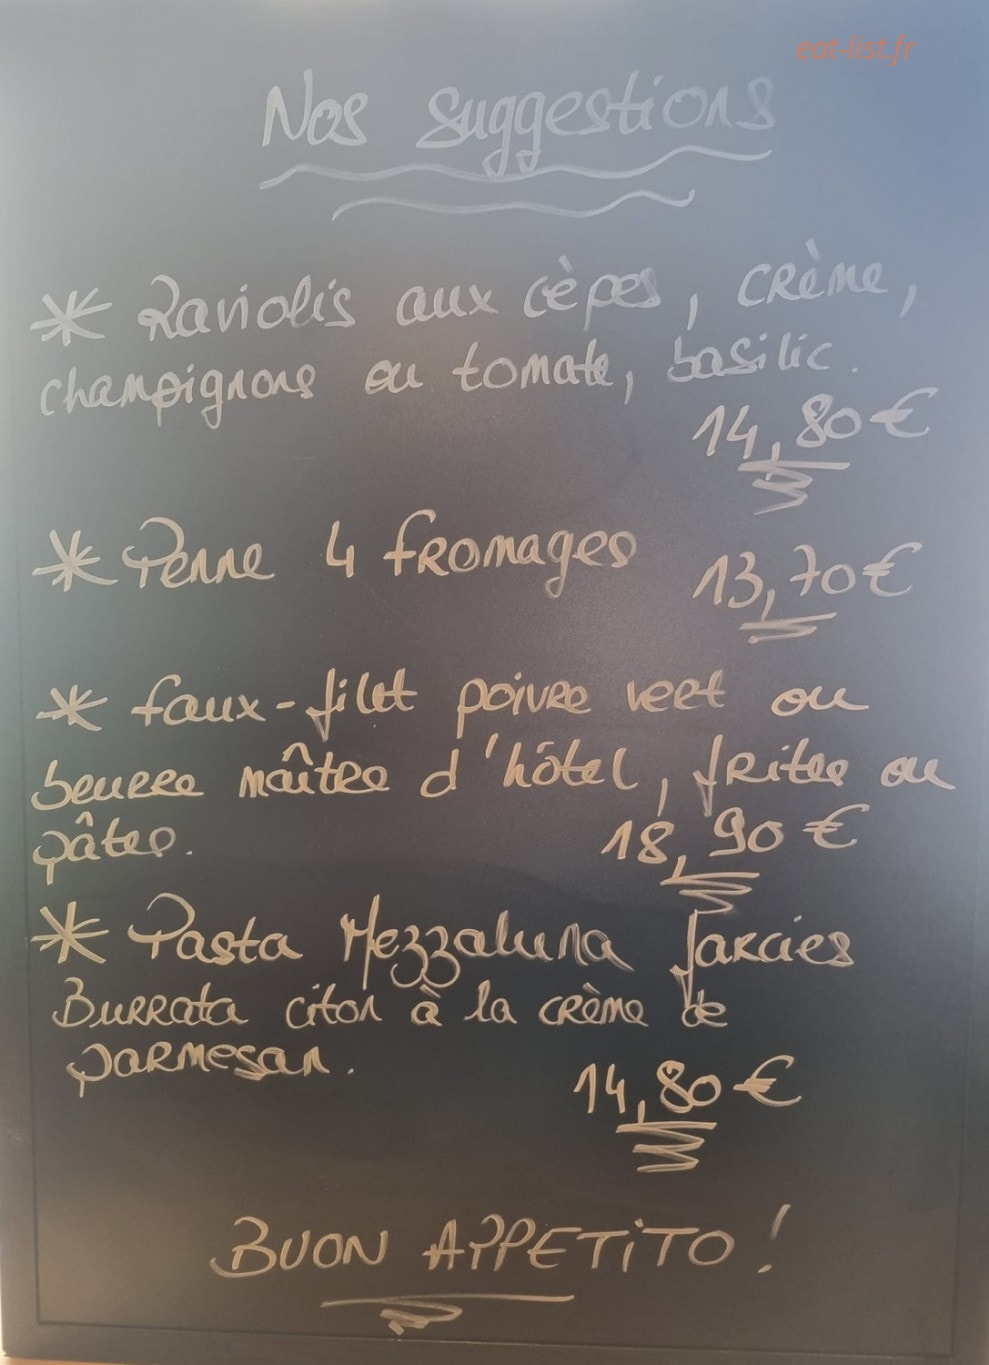 eat-list.fr
Nos suggestions
* Raviolis aux cèpes, crème,
champignons ou tomate, basilic.
14,80€
* Penne 4 fromages 13,70€
* faux-filet poivre vert ou
beurre maître d'hôtel, frites ou
pâtes. 18,90€
* Pasta Mezzaluna farcies
Burrata citon à la crème de
parmesan.
14,80€
BUON APPETITO!